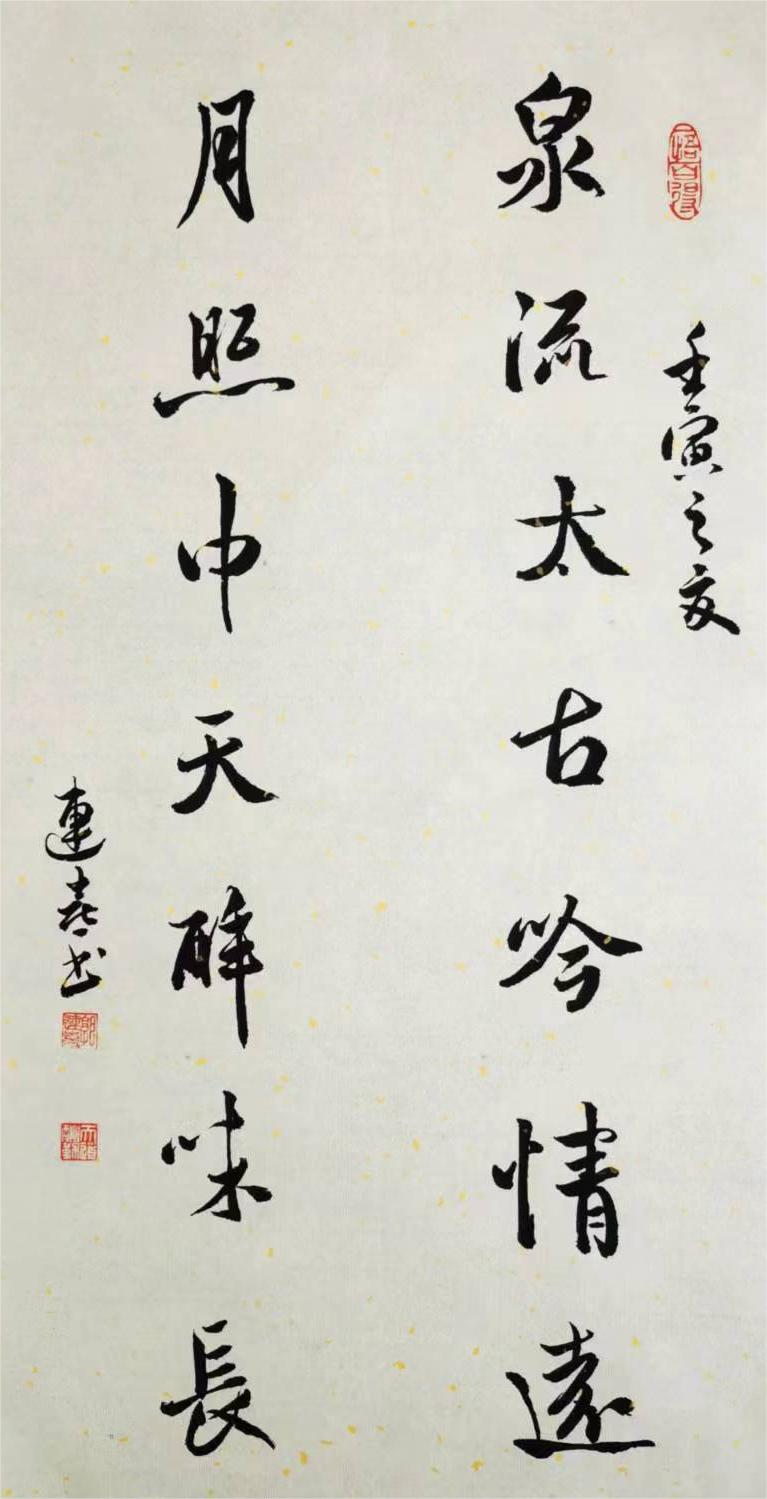 壬寅之夏
泉流太古吟情遠
月照中天醉味長
連喜书
天道酬勤